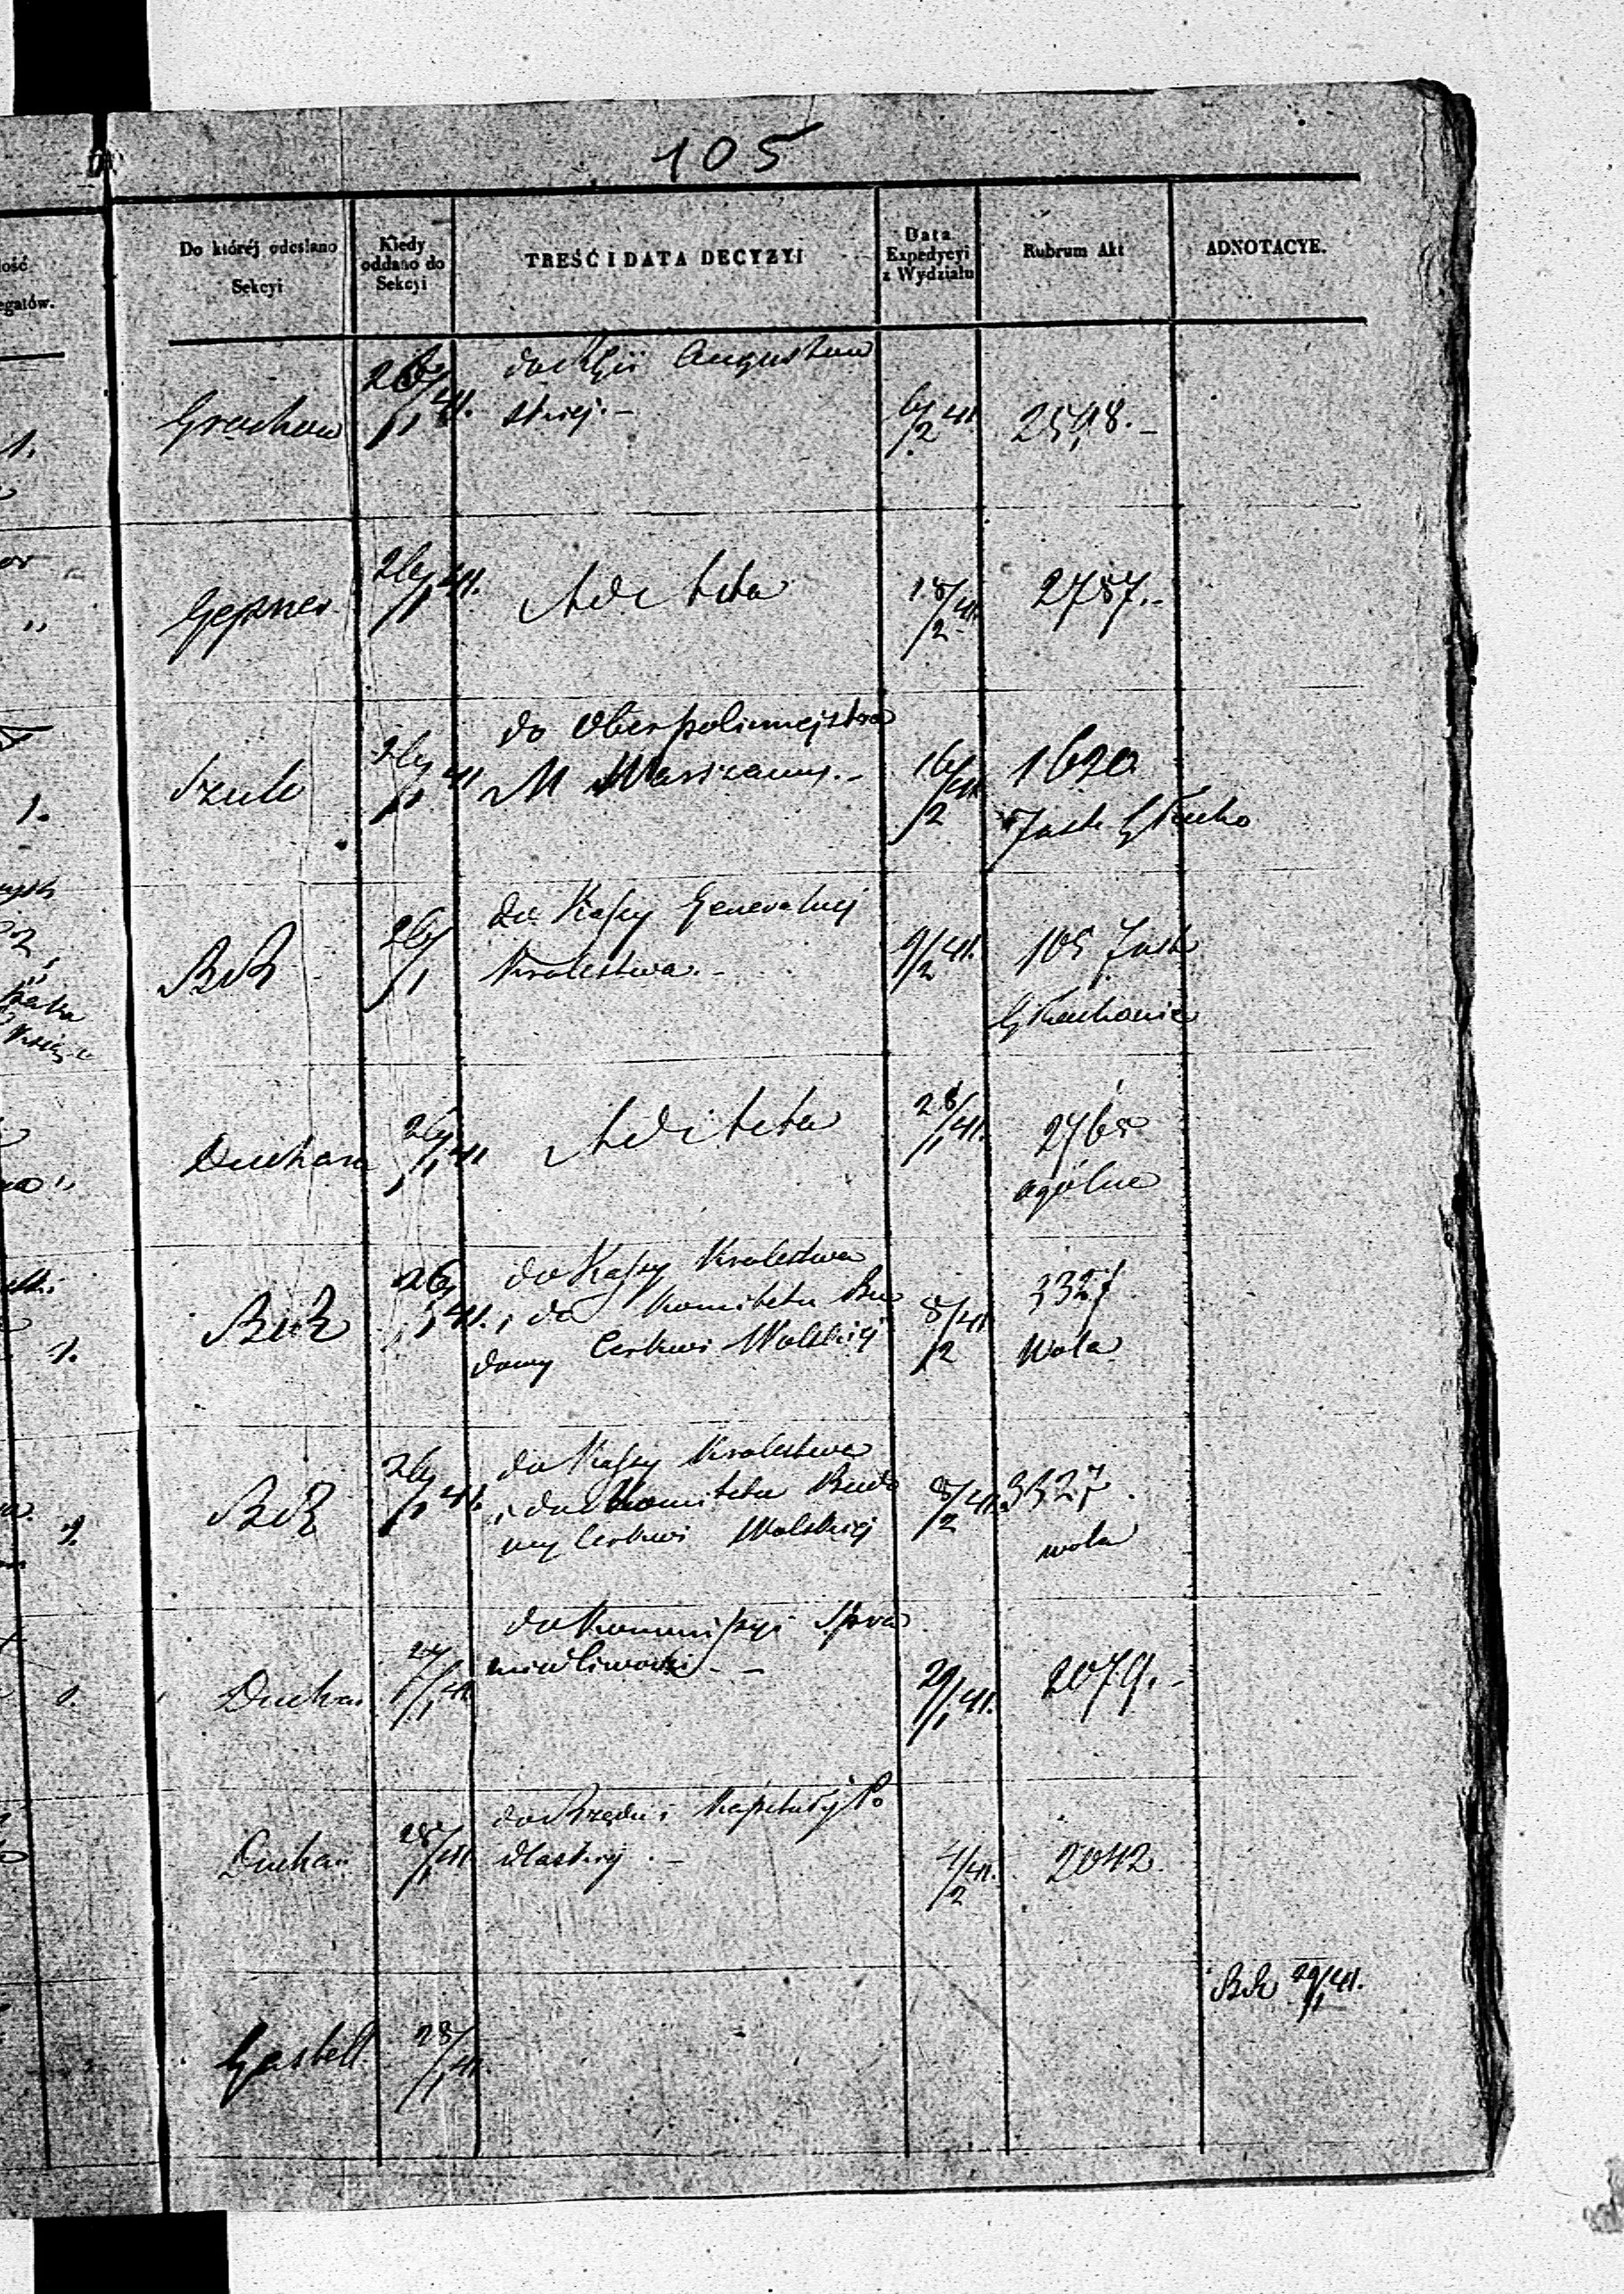 105
Do któréj odesłano
Sekcyi
Kiedy
oddano do
Sekcyi
TREŚĆ I DATA DECYZYI
Data
Expedycyi
z Wydziału
Rubrum Akt
ADNOTACYE.
Augustow
skiej.-
2598.-
Gepner
26/1 41.
Ad Acta
18/2 41
2757.-
Szulc
do Oberpolicmejstra
M Warszawy.-
16/2 41
1620
BR
26/1
do Kassy Generalnej
Krolestwa.-
9/2 41.
105
Duchow
26/1 41
Ad Acta
28/1 41.
2765
ogólne
BR
26/1 41.
do Kassy Krolestwa
i do Komitetu Bu
dowy Cerkwi Wolskiej
8/2 41
3327
Wola
BR
26/1 41.
do Kassy Krolestwa
i do Komitetu Budo
wy Cerkwi Wolskiej
8/2 41.
3327.
wola
Duchow
27/1 41
do Kommissyi Spra
wiedliwosci.-
29/1 41.
2079.-
Duchow
28/1 41
do Rządu i Kapituły Po
dlaskiej.-
4/2 41.
2042
BR 29/1 41.
Gastell
28/1 41